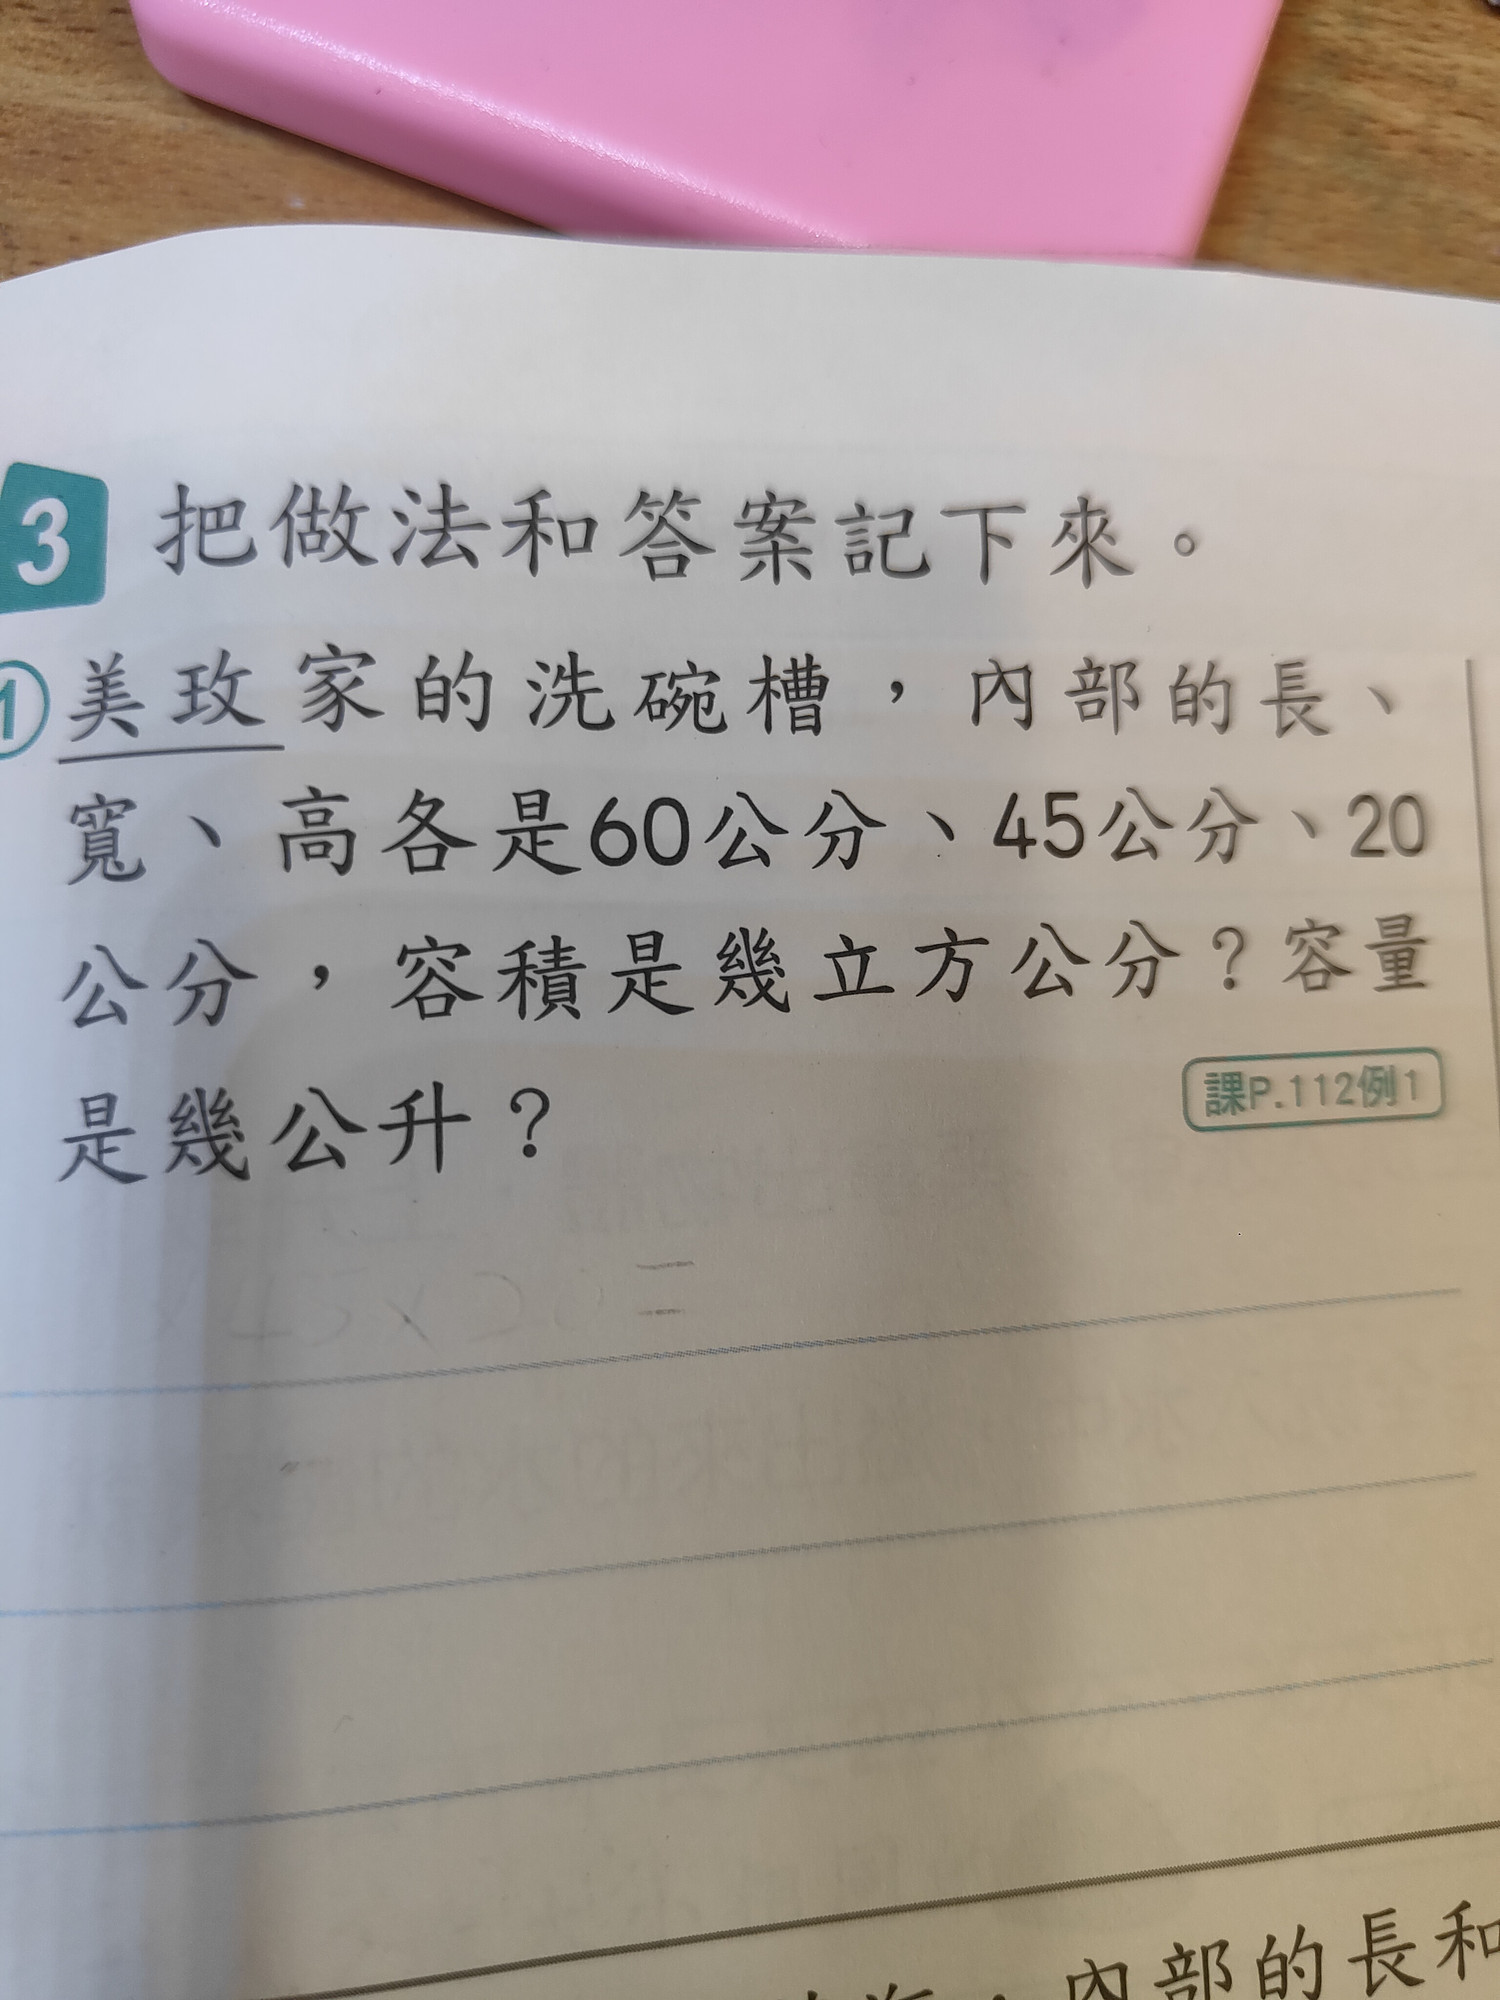 3 把做法和答案記下來。
①美玫家的洗碗槽，內部的長、
寬、高各是60公分、45公分、20
公分，容積是幾立方公分？容量
是幾公升？
課P.112例1
，內部的長和